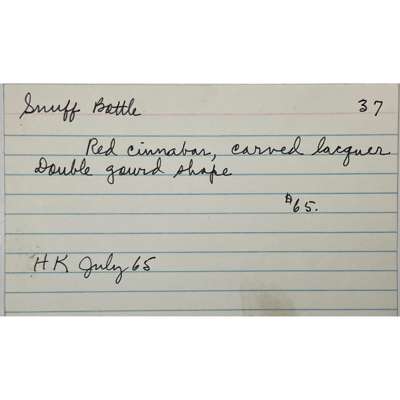 Snuff Bottle 37
Red cinnabar, carved lacquer
Double gourd shape
$65.
HK July 65